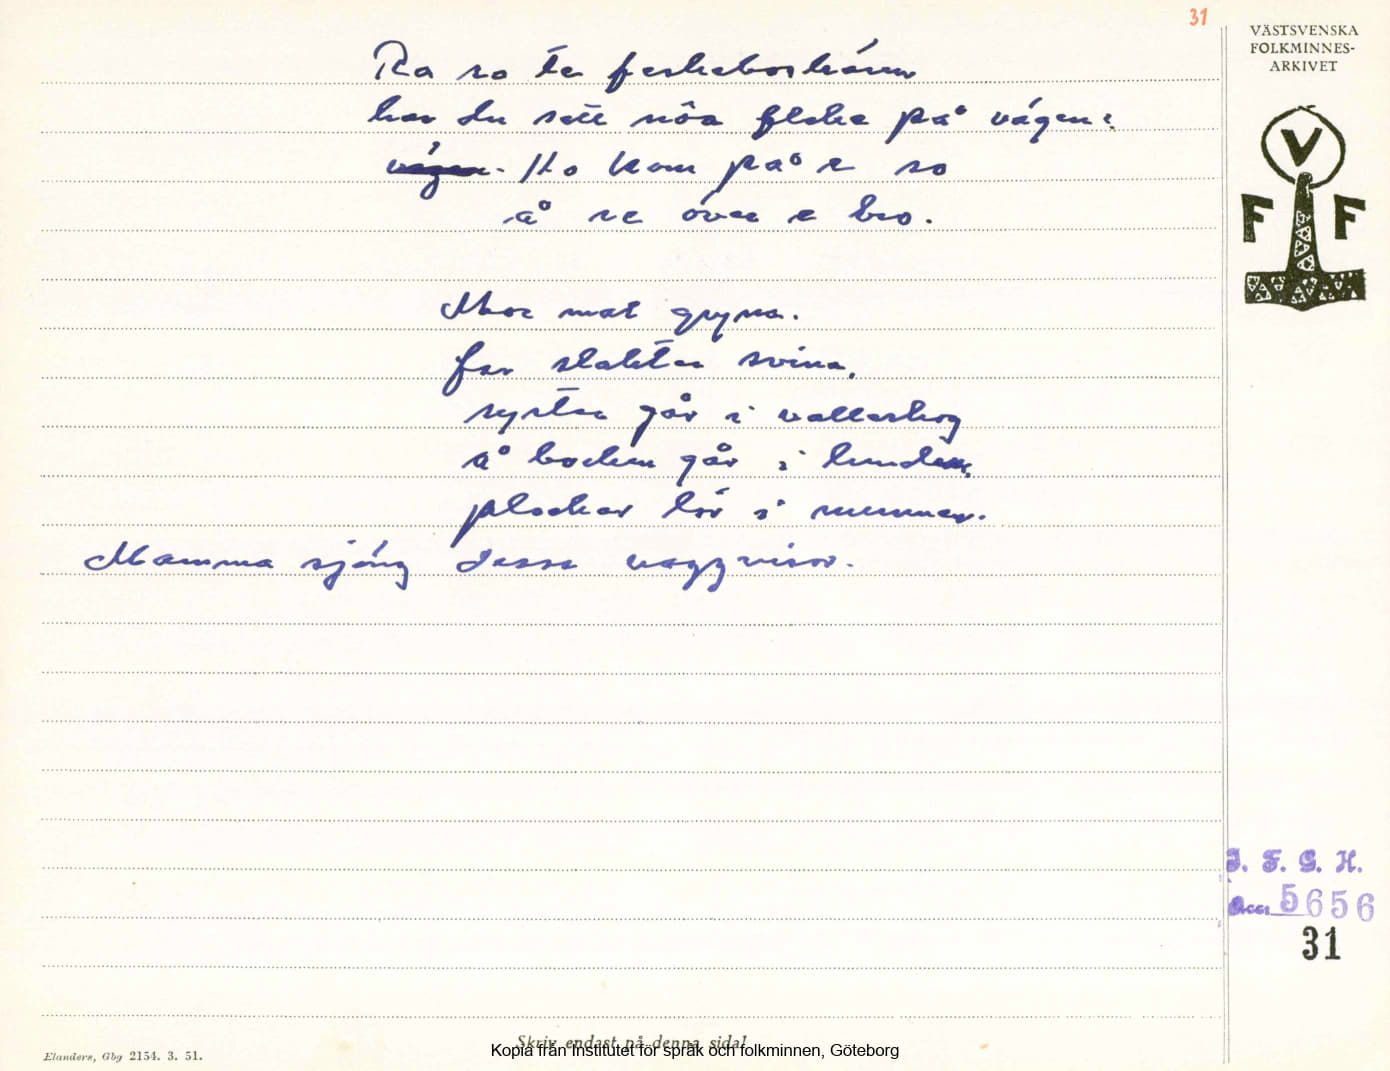 31
VÄSTSVENSKA
FOLKMINNES-
ARKIVET
V
F F
Ro ro te feskeboskären
har du sett nôa fleke på vägen?
vägen. Ho kom på e so
å re över e bro.
Mor mat gryna.
far slakter svina,
syster går i vallarskog
å broder går i lunden,
plockar löv i munnen.
Mamma sjöng dessa vaggvisor.
I. F. G. H.
Acc. 5656
31
Skriv endast på denna sida!
Elanders, Gbg 2154. 3. 51.
Kopia från Institutet för språk och folkminnen, Göteborg